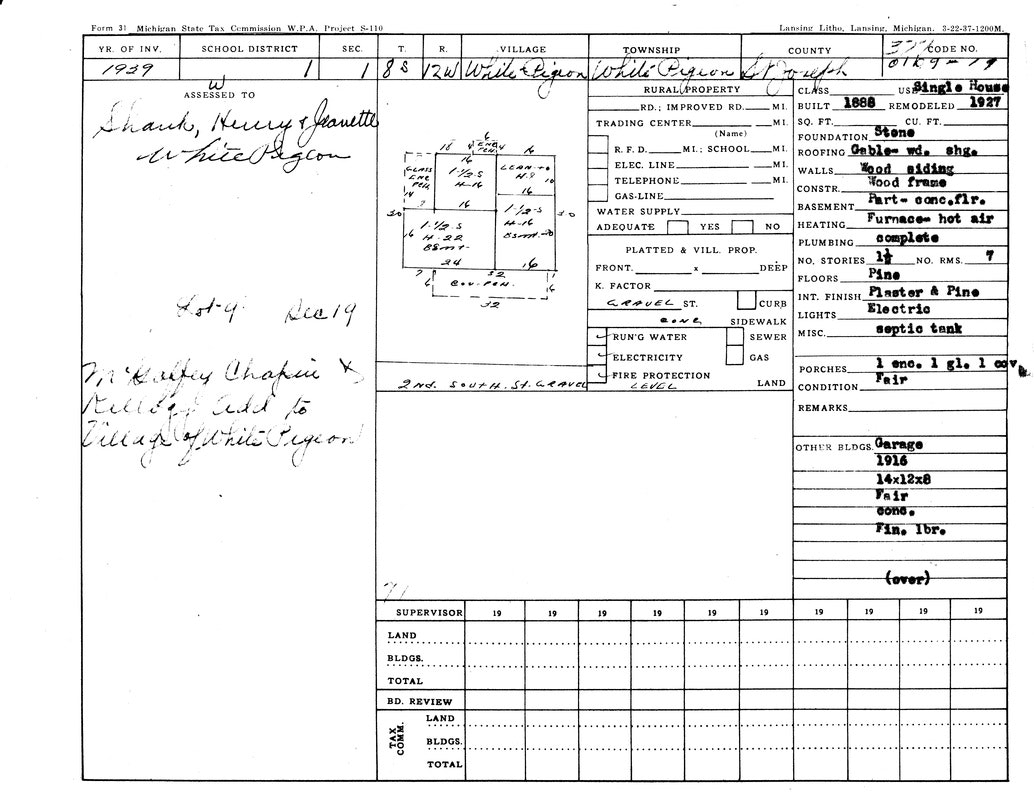 Form 31 Michigan State Tax Commission W.P.A. Project S-110
Lansing Litho, Lansing, Michigan. 3-22-37-1200M.
YR. OF INV. SCHOOL DISTRICT SEC. T. R. VILLAGE TOWNSHIP COUNTY CODE NO.
1939 1 1 8S 12W White Pigeon White Pigeon St Joseph
W
ASSESSED TO
Shank, Henry & Jeanette
White Pigeon
Lot 9 Dec 19
Chapin &
Add to
Village of White Pigeon
6
18 4 ENC. PCH. 4 16
GLASS ENC PCH.
14
16
1-1/2-S
H-16
LEAN-TO
H-9
10
16
7 16
30
1-1/2-S
H-22
BSMT-
16
1-1/2-S
H-16
BSMT-20
30
24 16
7 32 1
6 COV-PCH. 6
32
2ND. SOUTH. ST. GRAVEL
RURAL PROPERTY
RD.; IMPROVED RD. MI.
TRADING CENTER MI.
(Name)
R. F. D. MI.; SCHOOL MI.
ELEC. LINE MI.
TELEPHONE MI.
GAS-LINE
WATER SUPPLY
ADEQUATE YES NO
PLATTED & VILL. PROP.
FRONT. x DEEP
K. FACTOR
GRAVEL ST. CURB
CONC SIDEWALK
RUN'G WATER SEWER
ELECTRICITY GAS
FIRE PROTECTION
LEVEL LAND
CLASS USE Single House
BUILT 1888 REMODELED 1927
SQ. FT. CU. FT.
FOUNDATION Stone
ROOFING Gable- wd. shg.
WALLS Wood siding
CONSTR. Wood frame
BASEMENT Part- conc.flr.
HEATING Furnace- hot air
PLUMBING complete
NO. STORIES 1½ NO. RMS. 7
FLOORS Pine
INT. FINISH Plaster & Pine
LIGHTS Electric
MISC. septic tank
PORCHES 1 enc. 1 gl. 1 cov.
CONDITION Fair
REMARKS
OTHER BLDGS. Garage
1916
14x12x8
Fair
conc.
Fin. lbr.
(over)
SUPERVISOR 19 19 19 19 19 19 19 19 19 19
LAND
BLDGS.
TOTAL
BD. REVIEW
TAX COMM.
LAND
BLDGS.
TOTAL